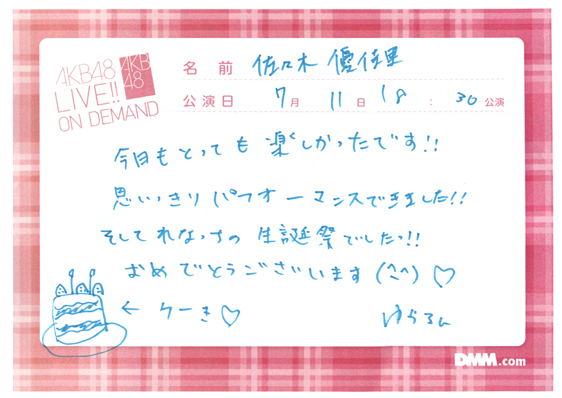 AKB48
LIVE!!
ON DEMAND
AKB
48
名前 佐々木優佳里
公演日 7月 11日 18:30公演
今日もとっても楽しかったです!!
思いっきりパフォーマンスできました!!
そしてれなっちの生誕祭でしたっ!!
おめでとうございます(^^)♡
← ケーキ♡
ゆうるん
DMM.com